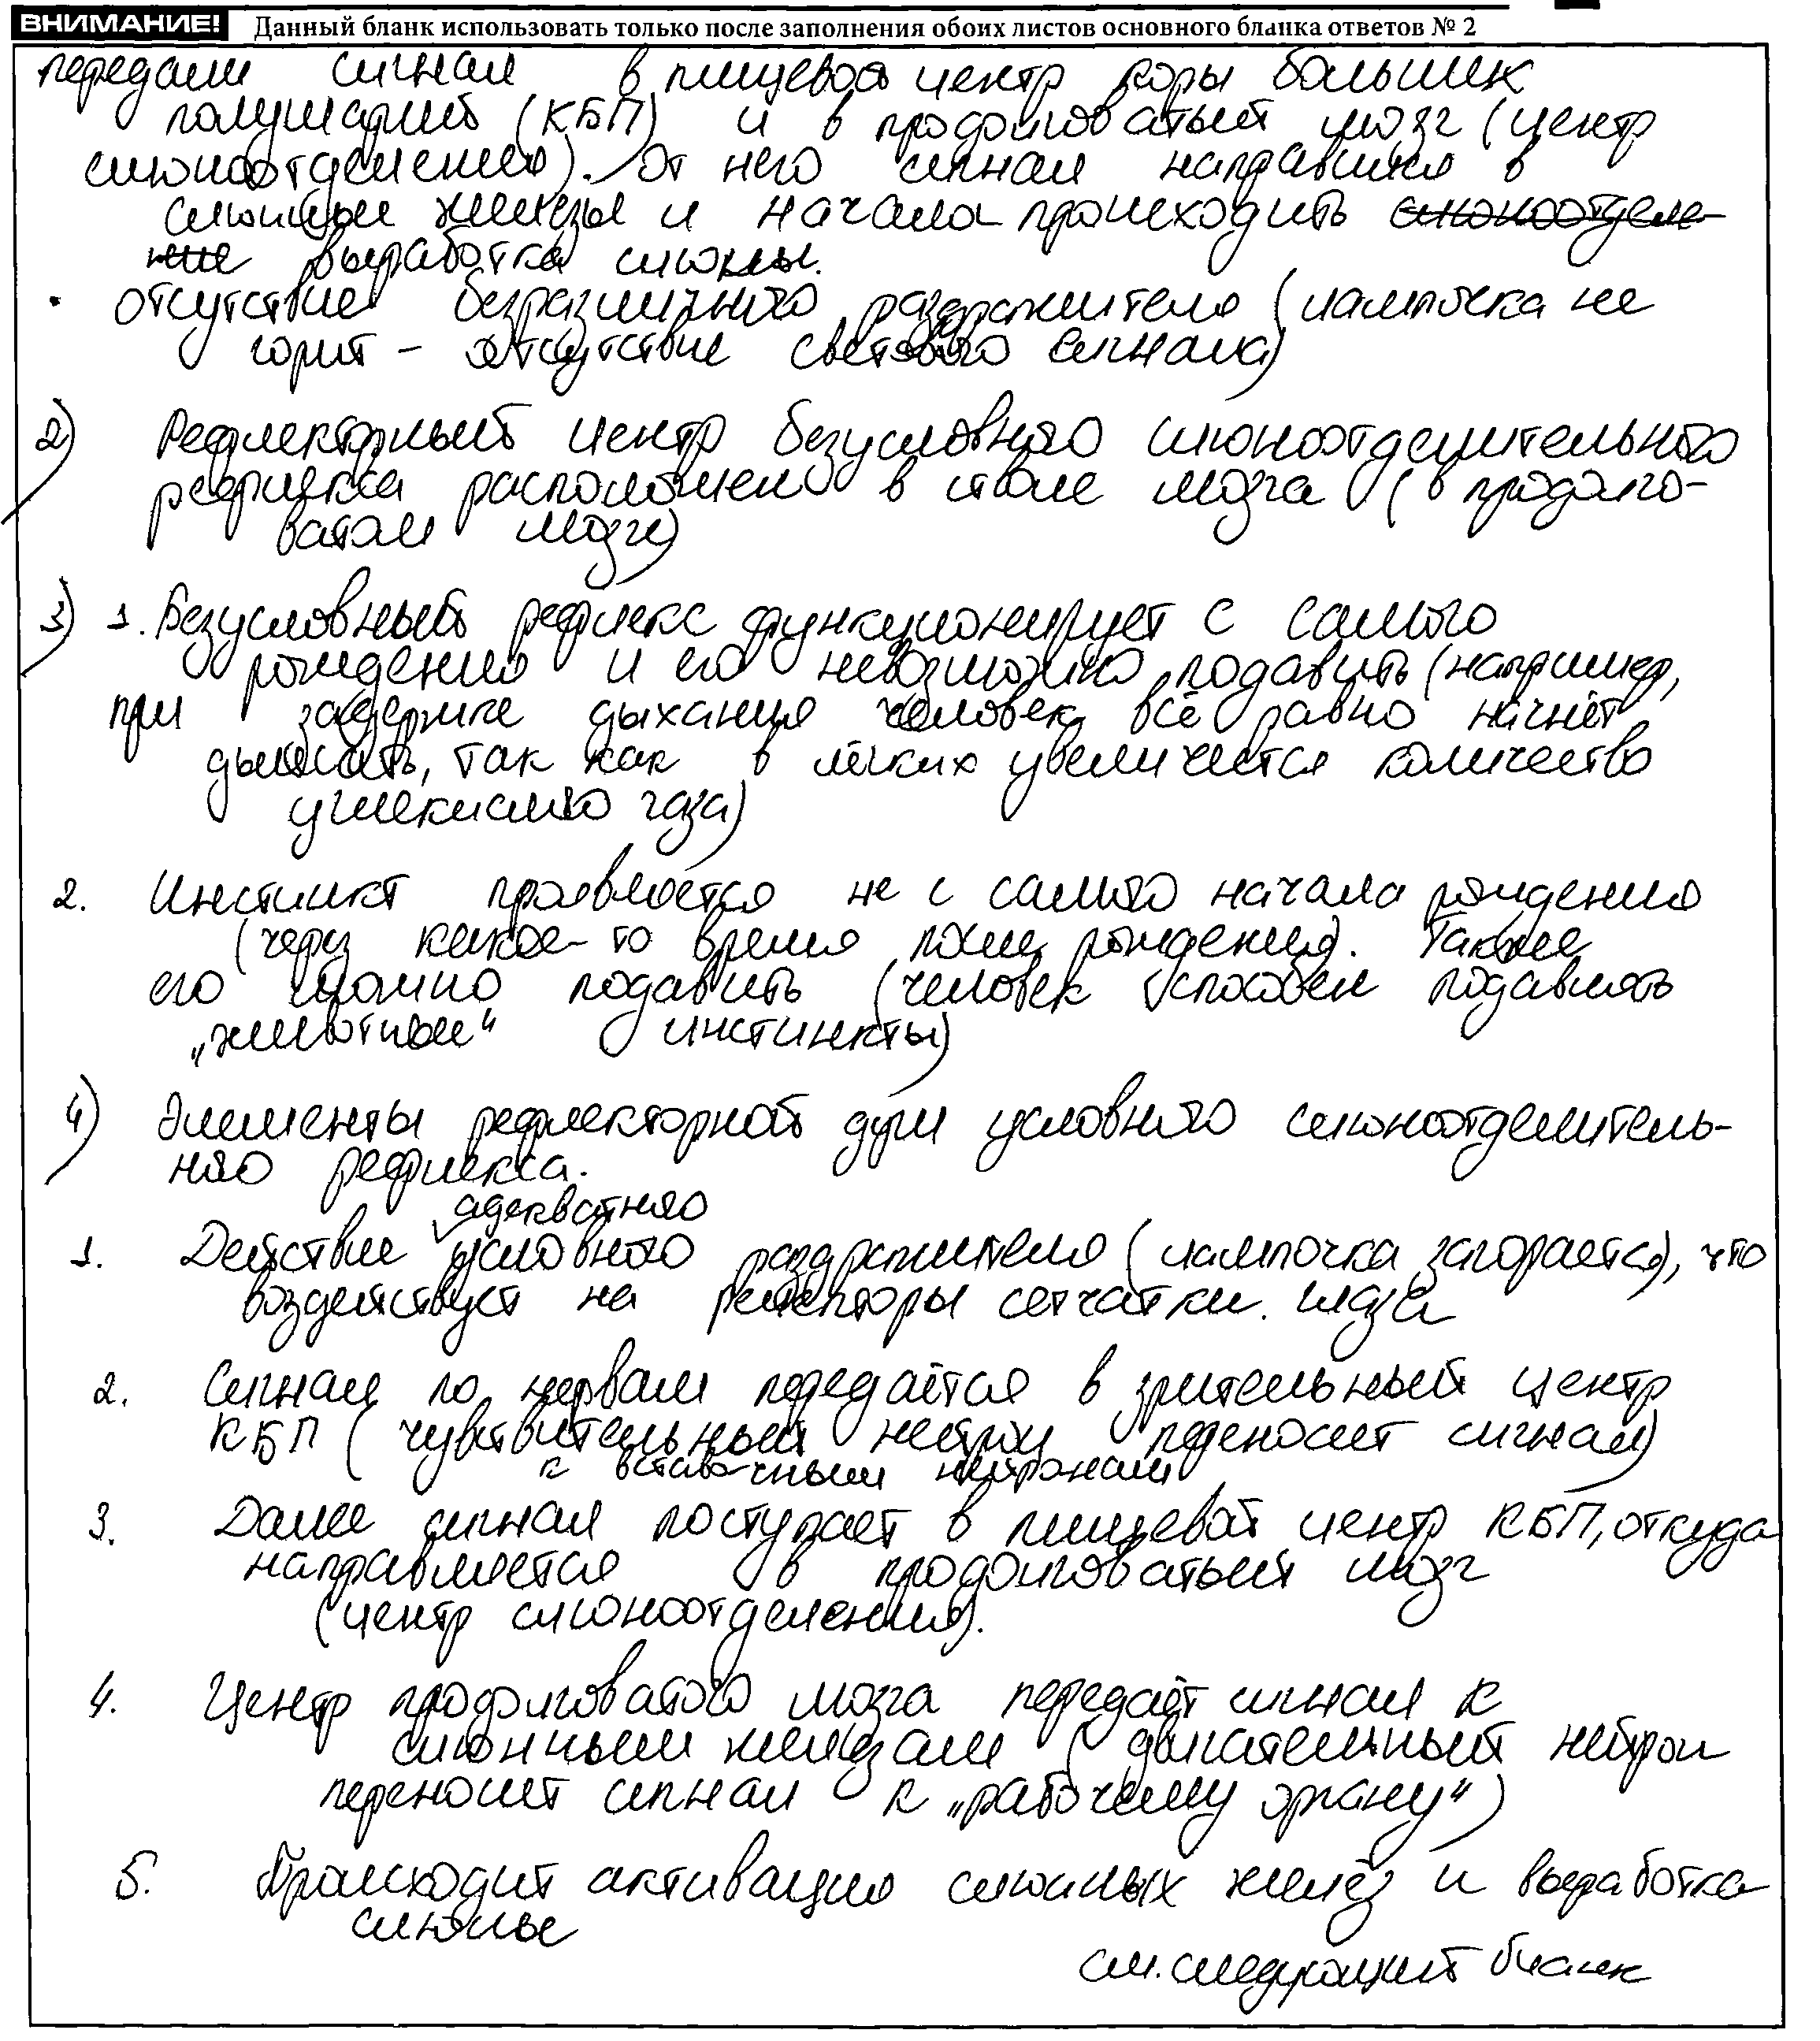 ВНИМАНИЕ! Данный бланк использовать только после заполнения обоих листов основного бланка ответов № 2
передали сигнал в пищевой центр коры больших
полушарий (КБП) и в продолговатый мозг (центр
слюноотделения). От него сигнал направился в
слюнные железы и начала происходить слюноотделе-
ние выработка слюны.
· отсутствие безразличного раздражителя (лампочка не
горит – отсутствие светового сигнала)
2) Рефлекторный центр безусловного слюноотделительного
рефлекса расположен в стволе мозга (в продолго-
ватом мозге)
3) 1. Безусловный рефлекс функционирует с самого
рождения и его невозможно подавить (например,
при задержке дыхания человек всё равно начнёт
дышать, так как в лёгких увеличется количество
углекислого газа)
2. Инстинкт проявляется не с самого начала рождения
(через какое-то время после рождения). Также
его можно подавить (человек способен подавлять
„животные“ инстинкты)
4) Элементы рефлекторной дуги условного слюноотделитель-
ного рефлекса.
адекватного
1. Действие условного раздражителя (лампочка загорается), что
воздействует на рецепторы сетчатки глаза
2. Сигнал по нервам передаётся в зрительный центр
КБП (чувствительный нейрон переносит сигнал)
к вставочным нейронам
3. Далее сигнал поступает в пищевой центр КБП, откуда
направляется в продолговатый мозг
(центр слюноотделения).
4. Центр продолговатого мозга передаёт сигнал к
слюнным железам (двигательный нейрон
переносит сигнал к „рабочему органу“)
5. Происходит активация слюнных желёз и выработка
слюны
см. следующий бланк